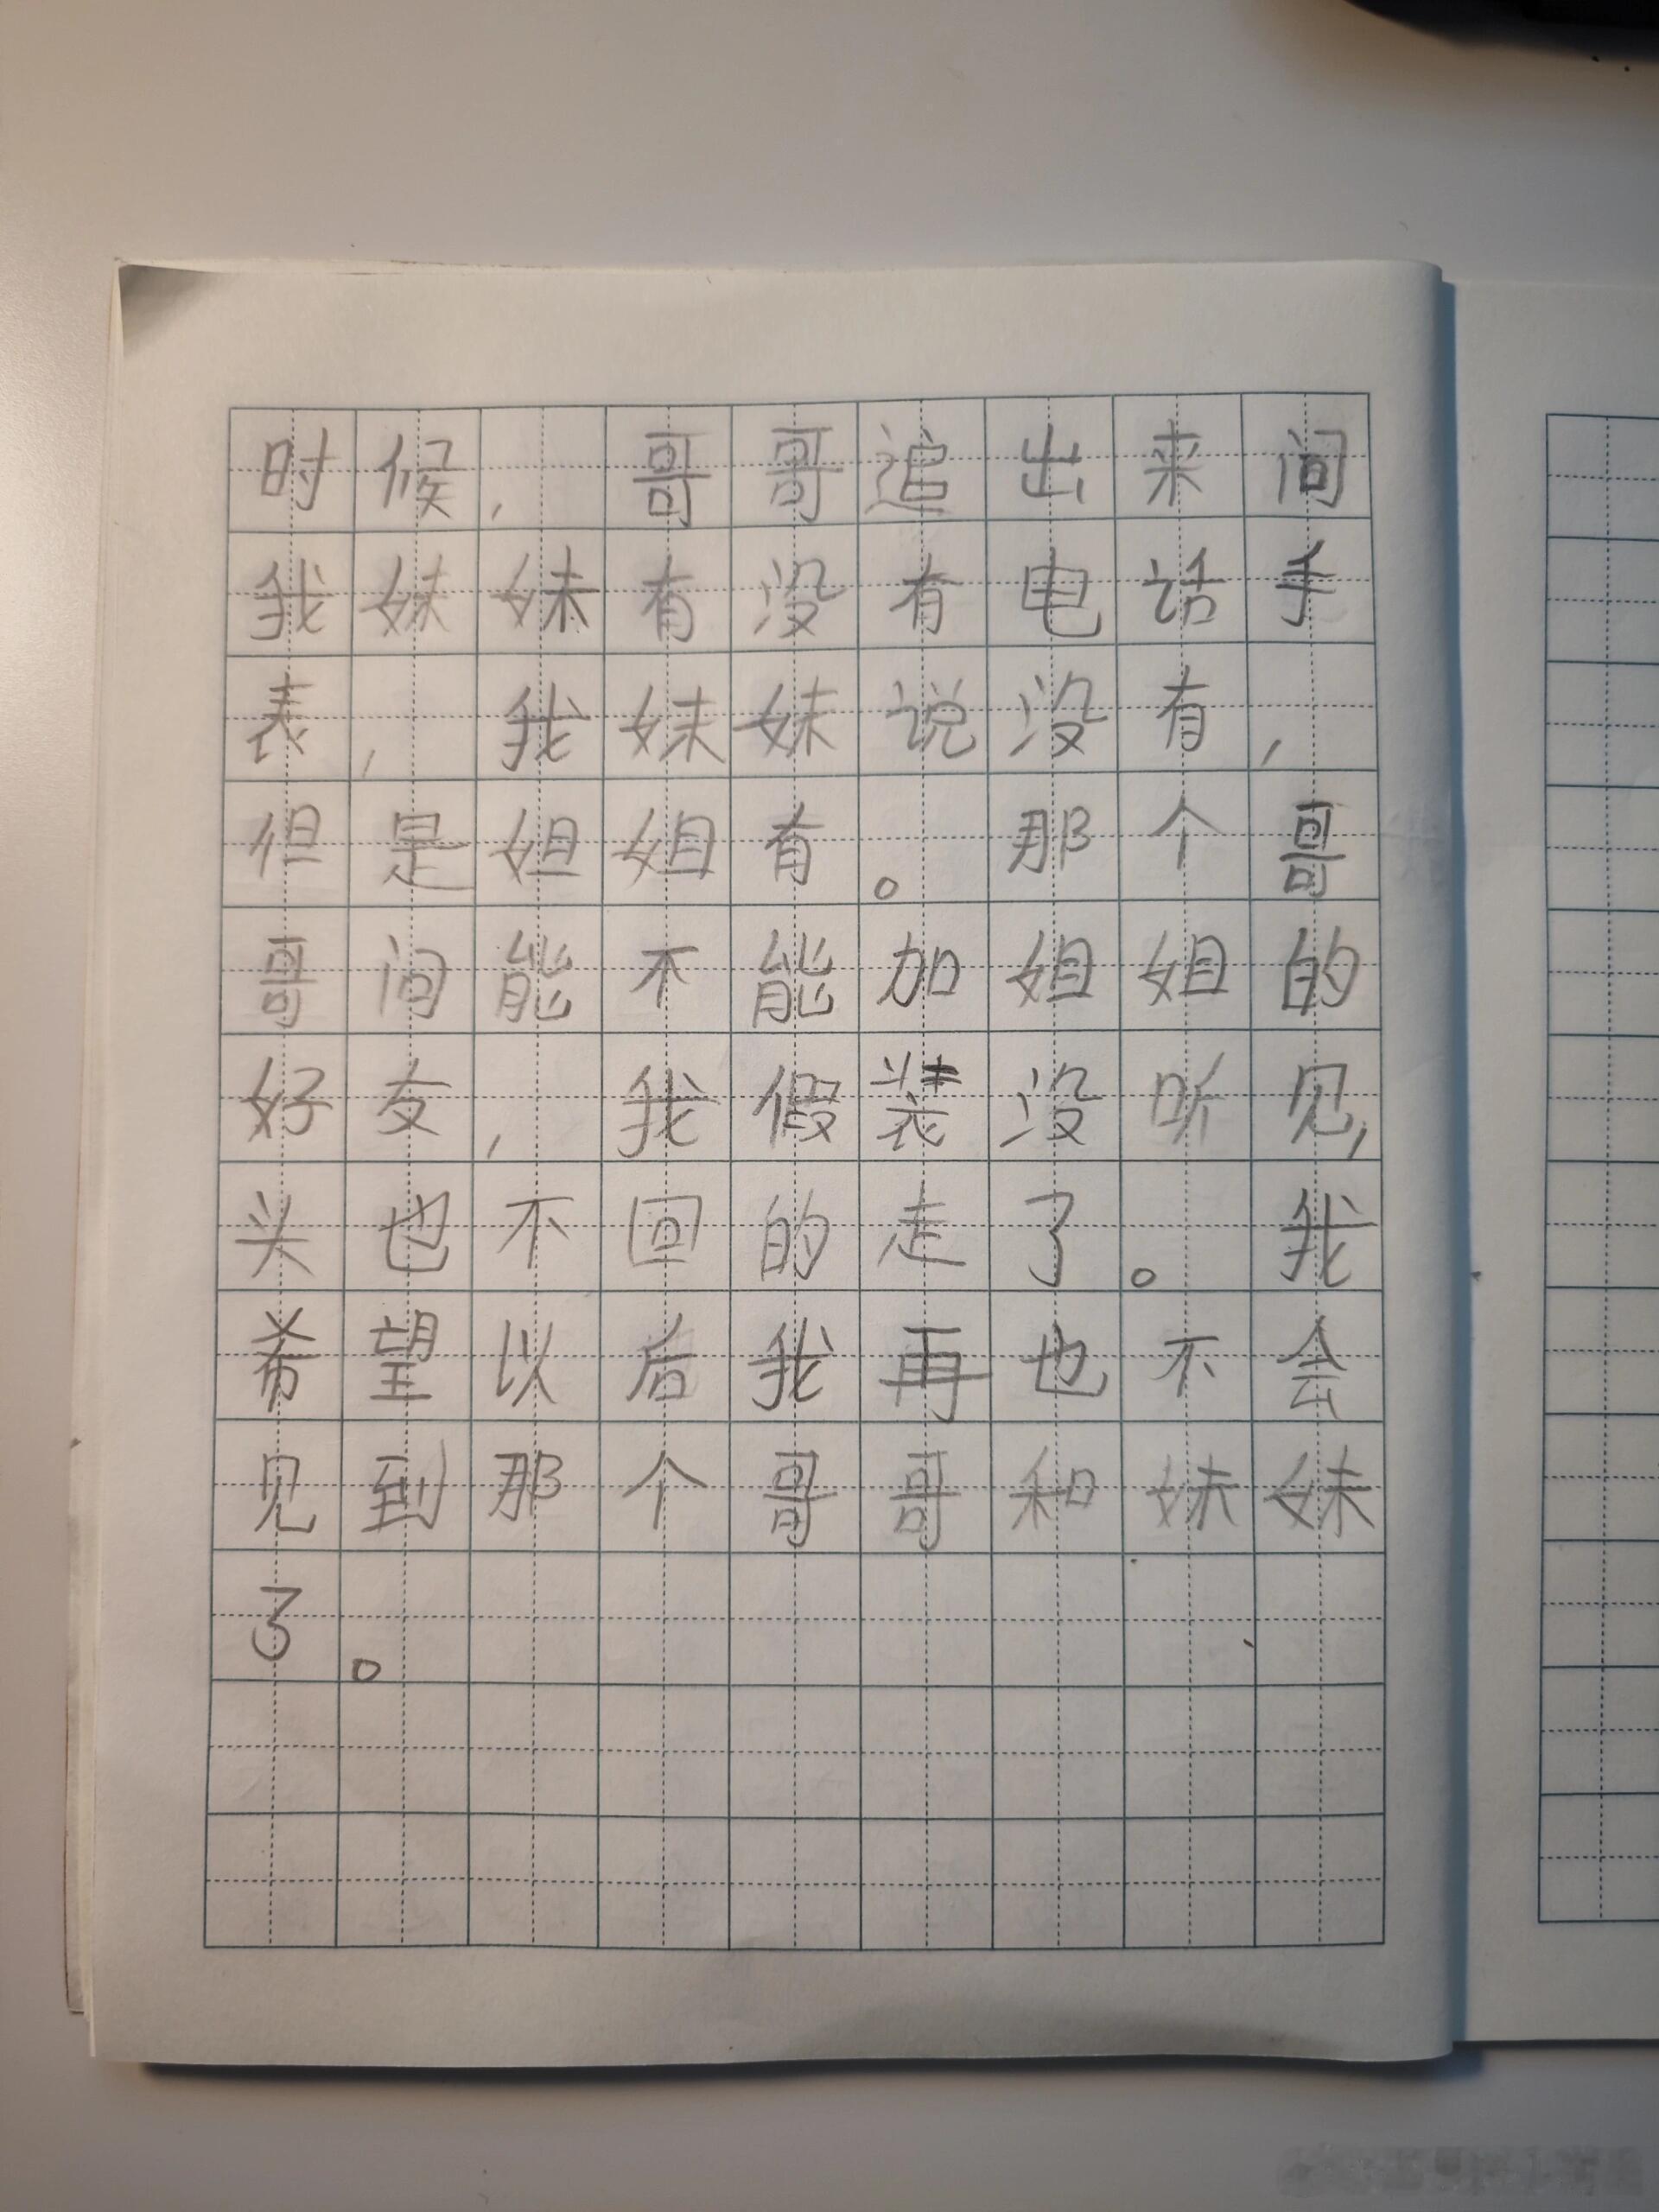 时候，哥哥追出来问
我妹妹有没有电话手
表，我妹妹说没有，
但是姐姐有。那个哥
哥问能不能加姐姐的
好友，我假装没听见，
头也不回的走了。我
希望以后我再也不会
见到那个哥哥和妹妹
了。